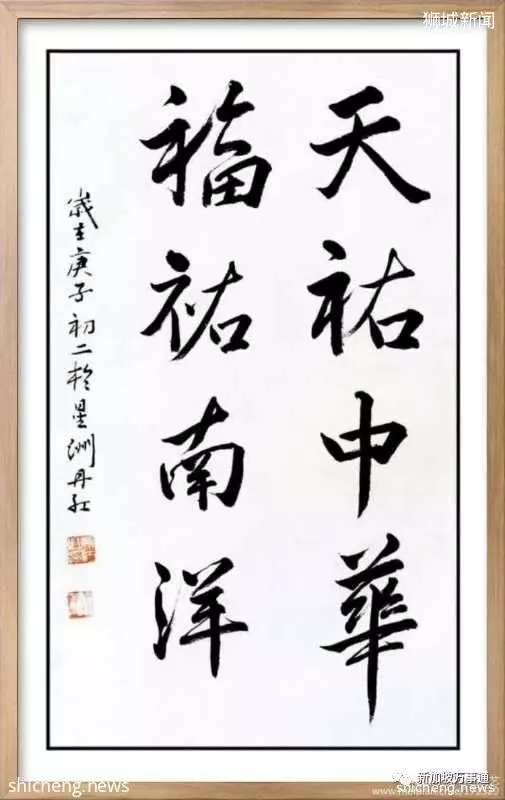 狮城新闻
天祐中華
福祐南洋
歲在庚子初二於星洲丹红
新加坡万事通
shicheng.news
shicheng.news